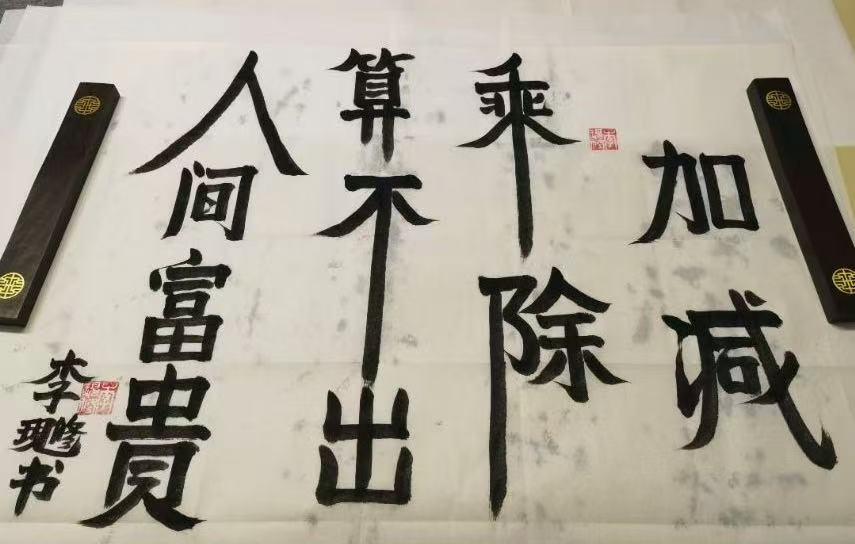 加减
乘除
算不出
人间富贵
李现修书